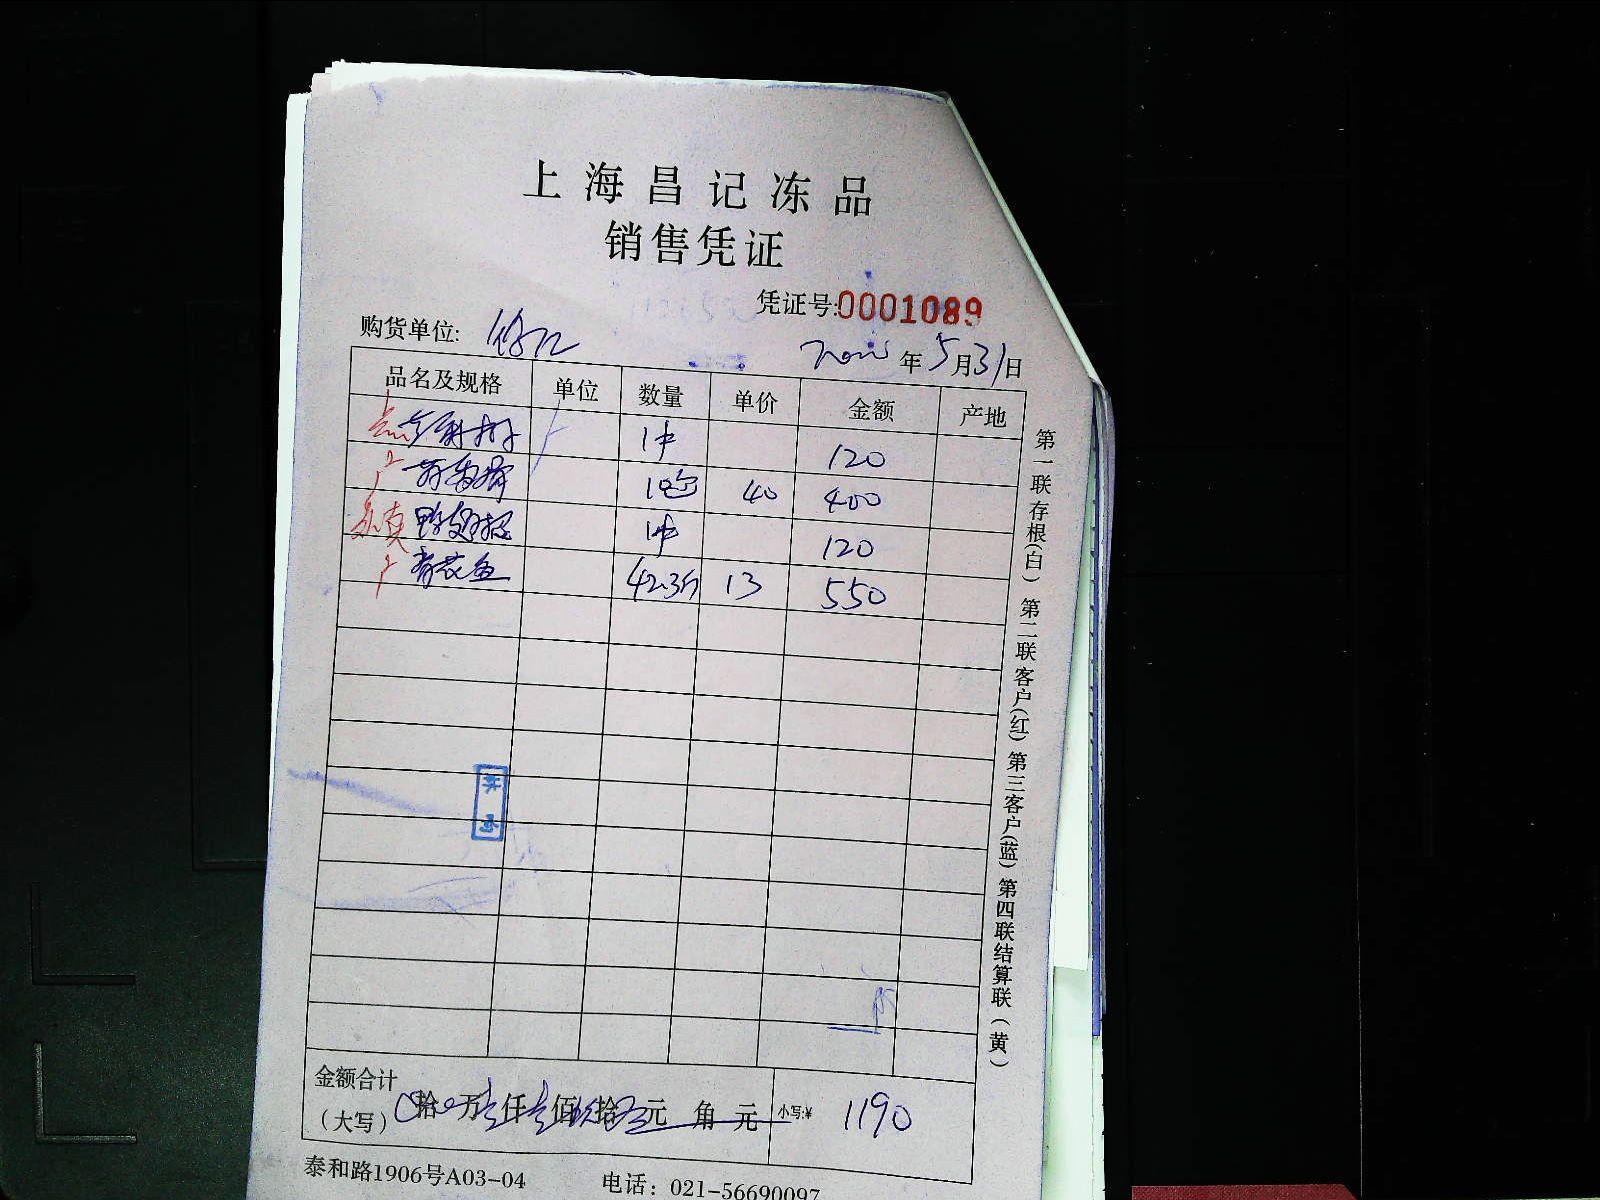 上海昌记冻品
销售凭证
凭证号:0001089
购货单位:
年5月31日
品名及规格 单位 数量 单价 金额 产地
1件 120
10包 40 400
1件 120
青花鱼 42.3斤 13 550
金额合计
(大写) 0拾0万壹仟壹佰玖拾0元 角 元 小写:¥ 1190
泰和路1906号A03-04 电话：021-56690097
第一联存根(白) 第二联客户(红) 第三客户(蓝) 第四联结算联(黄)